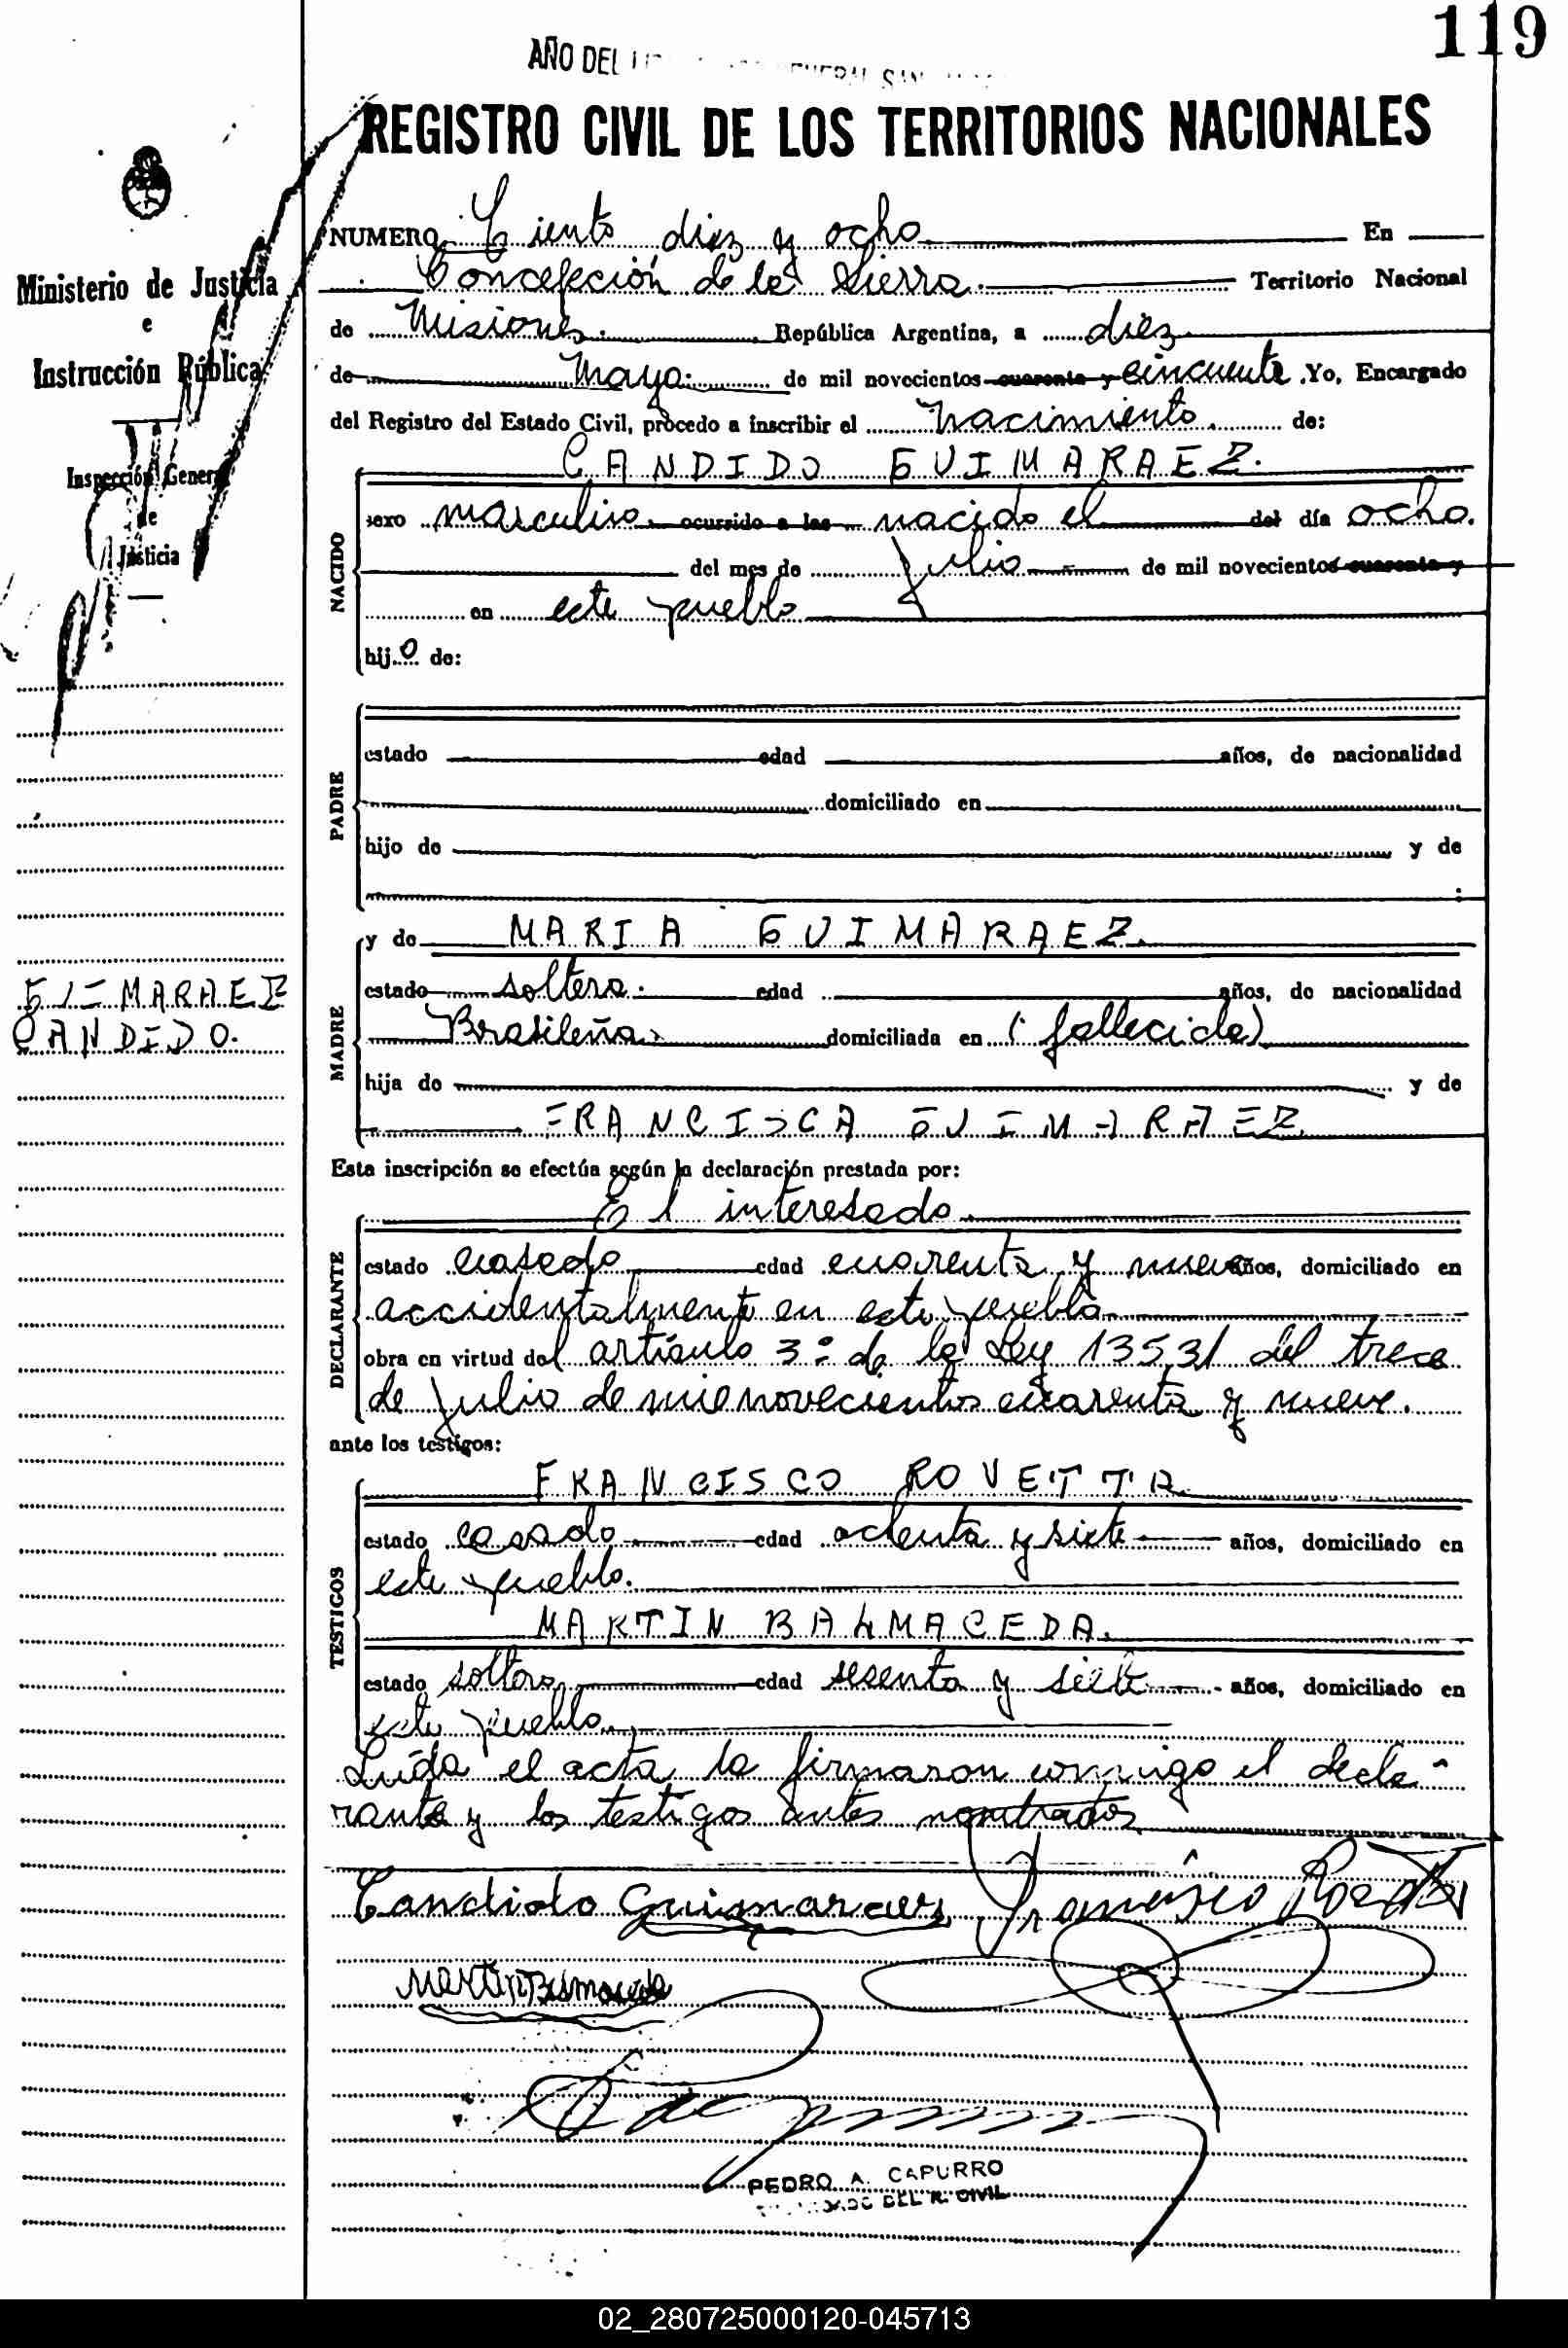 119
AÑO DEL
REGISTRO CIVIL DE LOS TERRITORIOS NACIONALES
Ministerio de Justicia
e
Instrucción Pública
Inspección General
de
Justicia
NUMERO Ciento diez y ocho En
Concepción de la Sierra. Territorio Nacional
de Misiones. República Argentina, a diez
de Mayo. de mil novecientos cuarenta y cincuenta. Yo, Encargado
del Registro del Estado Civil, procedo a inscribir el nacimiento. de:
NACIDO
CANDIDO GUIMARAEZ.
sexo masculino. ocurrido a las nacido el del día ocho.
del mes de julio de mil novecientos cuarenta y
en este pueblo
hijo de:
PADRE
estado edad años, de nacionalidad
domiciliado en
hijo de y de
MADRE
y de MARIA GUIMARAEZ.
GUIMARAEZ
CANDIDO.
estado soltera. edad años, de nacionalidad
Brasileña. domiciliada en (fallecida)
hija de y de
FRANCISCA GUIMARAEZ
Esta inscripción se efectúa según la declaración prestada por:
DECLARANTE
El interesado.
estado casado edad cuarenta y nueve años, domiciliado en
accidentalmente en este pueblo
obra en virtud del artículo 3º de la Ley 13531 del trece
de julio de mil novecientos cuarenta y nueve.
ante los testigos:
TESTIGOS
FRANCISCO ROVETTA
estado casado edad ochenta y siete años, domiciliado en
este pueblo.
MARTIN BALMACEDA.
estado soltero edad sesenta y siete años, domiciliado en
este pueblo.
Leída el acta la firmaron conmigo el decla-
rante y los testigos antes nombrados
Candido Guimaraez Francisco Rovetta
Martin Balmaceda
PEDRO A. CAPURRO
DEL R. CIVIL
02_280725000120-045713